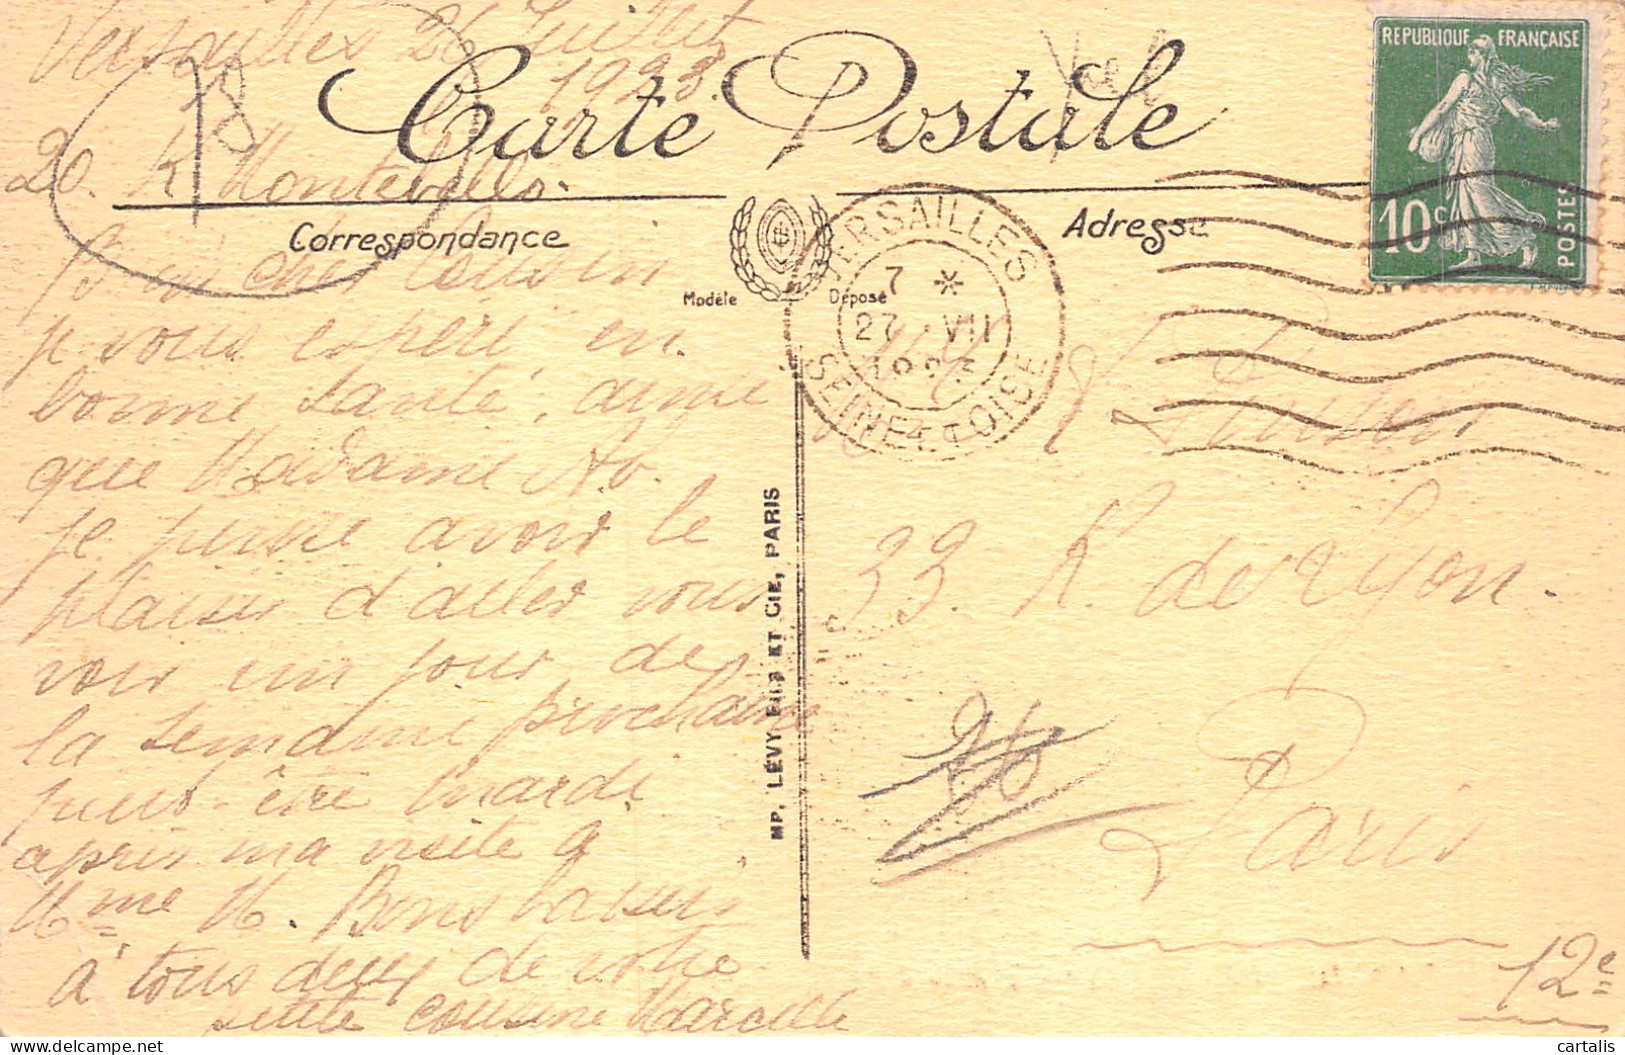 Versailles 26 Juillet
1923.
78
Carte Postale
20. R Montebello.
Correspondance
Adresse
Modèle
Déposé
REPUBLIQUE FRANÇAISE
10c
POSTES
VERSAILLES
7 *
27 VII
SEINE ET OISE
mon cher Cousin
je vous espère en
bonne Santé, ainsi
que Madame
je pense avoir le
plaisir d'aller vous
voir un jour de
la semaine prochaine
peut-être mardi
après ma visite a
Mme M. Bons baisers
à tous deux de votre
petite cousine Marcelle
MP. LÉVY FILS ET CIE, PARIS
Pinson
33. R. de Lyon.
Paris
12e
cartalis
delcampe.net